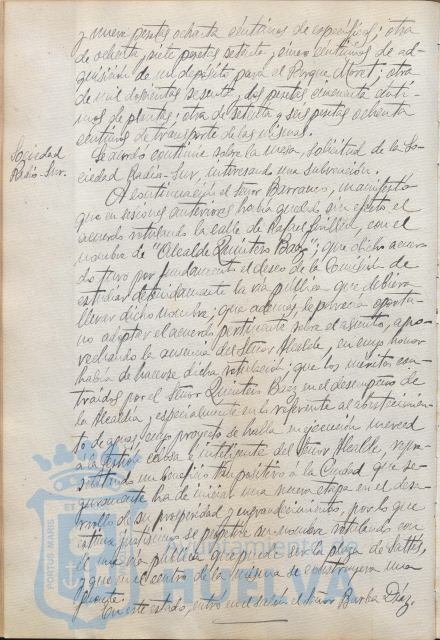 y nueve pesetas ochenta céntimos de específicos; otra
de ochenta y siete pesetas setenta y cinco céntimos de ad-
quisición de un depósito para el Parque Moret; otra
de mil doscientas sesenta y dos pesetas cincuenta cénti-
mos de plantas; otra de setenta y seis pesetas ochenta
céntimos de transporte de las mismas.
Sociedad
Radio-Sur.
Se acordó continúe sobre la mesa, solicitud de la So-
ciedad Radio-Sur, interesando una subvención.
A continuación el señor Barranco, manifestó
que en sesiones anteriores había quedado sin efecto el
acuerdo rotulando la calle de Rafael Guillén, con el
nombre de "Alcalde Quintero Báez"; que dicho acuer-
do tuvo por fundamento el deseo de la Comisión de
estudiar detenidamente la vía pública que debiera
llevar dicho nombre; que además le parecía oportu-
no adoptar el acuerdo pertinente sobre el asunto, apro-
vechando la ausencia del Señor Alcalde, en cuyo honor
había de hacerse dicha rotulación; que los méritos con-
traídos por el Señor Quintero Báez en el desempeño de
la Alcaldía y especialmente en lo referente al abastecimien-
to de aguas, cuyo proyecto se halla en ejecución merced
a la gestión celosa e inteligente del Señor Alcalde, repre-
sentando un beneficio tan positivo á la Ciudad que se-
guramente ha de iniciar una nueva etapa en el desa-
rrollo de su prosperidad y engrandecimiento, por lo que
estima justísimo se perpetúe su nombre rotulando con
él una vía pública que puede ser la plaza de Saltés,
y que en el centro de la misma se construyera una
fuente.
En este estado, entró en el salón el señor Barba Díaz.
PORTUS MARIS ET
Ayuntamiento
HUELVA